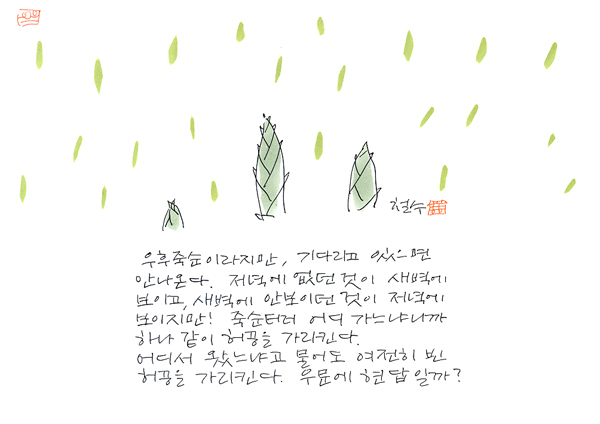 철수
우후죽순이라지만, 기다리고 있으면
안나온다. 저녁에 없던것이 새벽에
보이고, 새벽에 안보이던 것이 저녁에
보이지만! 죽순더러 어디 가느냐니까
하나 같이 허공을 가리킨다.
어디서 왔느냐고 물어도 여전히 빈
허공을 가리킨다. 우문에 현답일까?